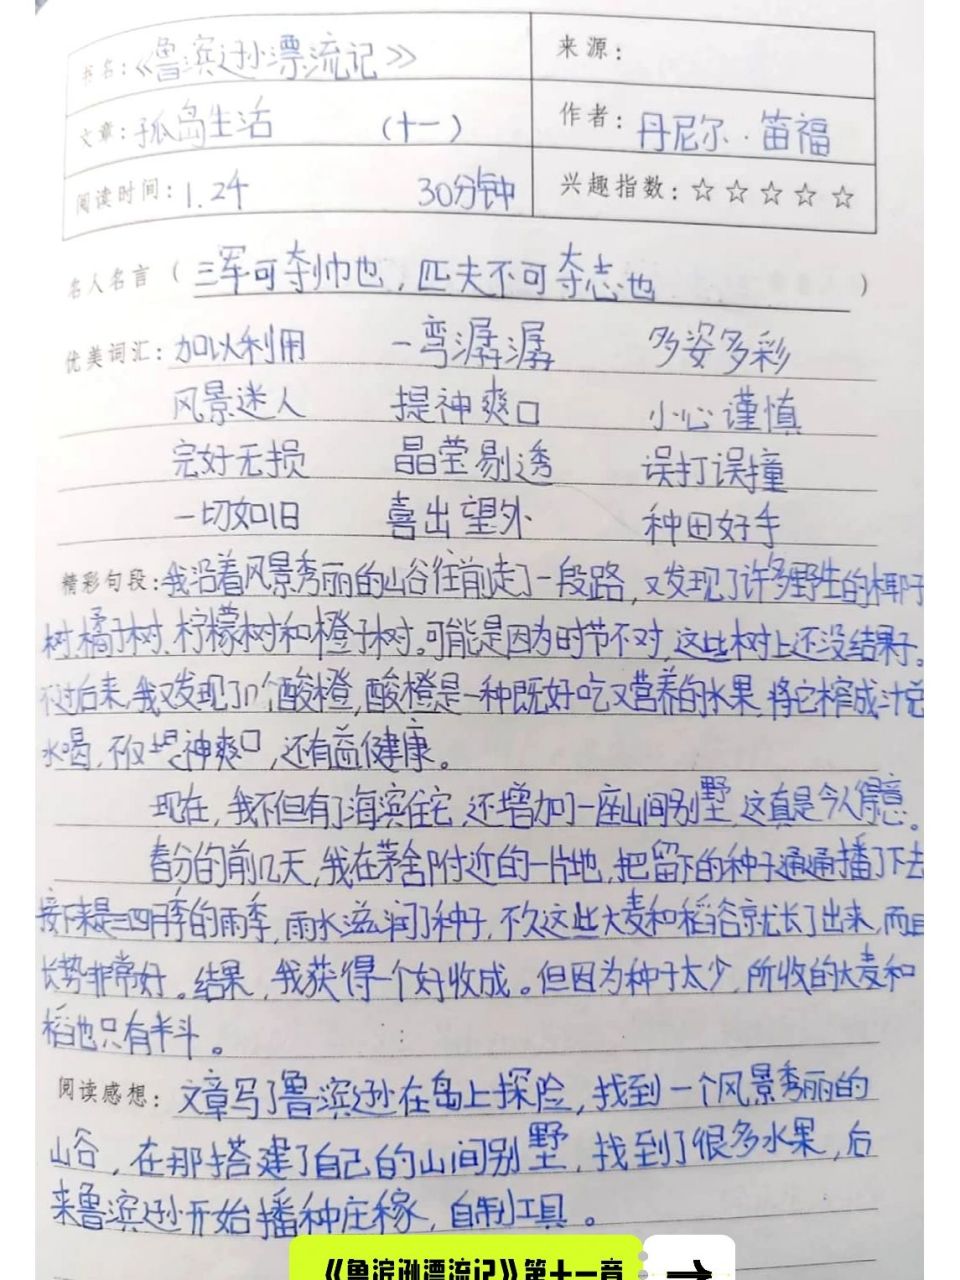 书名:《鲁滨逊漂流记》 来源:
文章:孤岛生活 (十一) 作者:丹尼尔·笛福
阅读时间:1.24 30分钟 兴趣指数:☆☆☆☆☆
名人名言(三军可夺帅也,匹夫不可夺志也)
优美词汇:加以利用 一弯潺潺 多姿多彩
风景迷人 提神爽口 小心谨慎
完好无损 晶莹剔透 误打误撞
一切如旧 喜出望外 种田好手
精彩句段:我沿着风景秀丽的山谷往前走了一段路,又发现了许多野生的椰子
树、橘子树、柠檬树和橙子树。可能是因为时节不对,这些树上还没结果子。
不过后来,我又发现了几个酸橙,酸橙是一种既好吃又营养的水果,将它榨成汁兑
水喝,不仅提神爽口,还有益健康。
现在,我不但有了海滨住宅,还增加了一座山间别墅,这真是令人得意。
春分的前几天,我在茅舍附近的一片地,把留下的种子通通播了下去
接下来是三四月季的雨季,雨水滋润了种子,不久这些大麦和稻谷就长了出来,而且
长势非常好。结果,我获得一个好收成。但因为种子太少,所收的大麦和
稻也只有半斗。
阅读感想:文章写了鲁滨逊在岛上探险,找到一个风景秀丽的
山谷,在那搭建了自己的山间别墅,找到了很多水果,后
来鲁滨逊开始播种庄稼,自制工具。
《鲁滨孙漂流记》第十一章